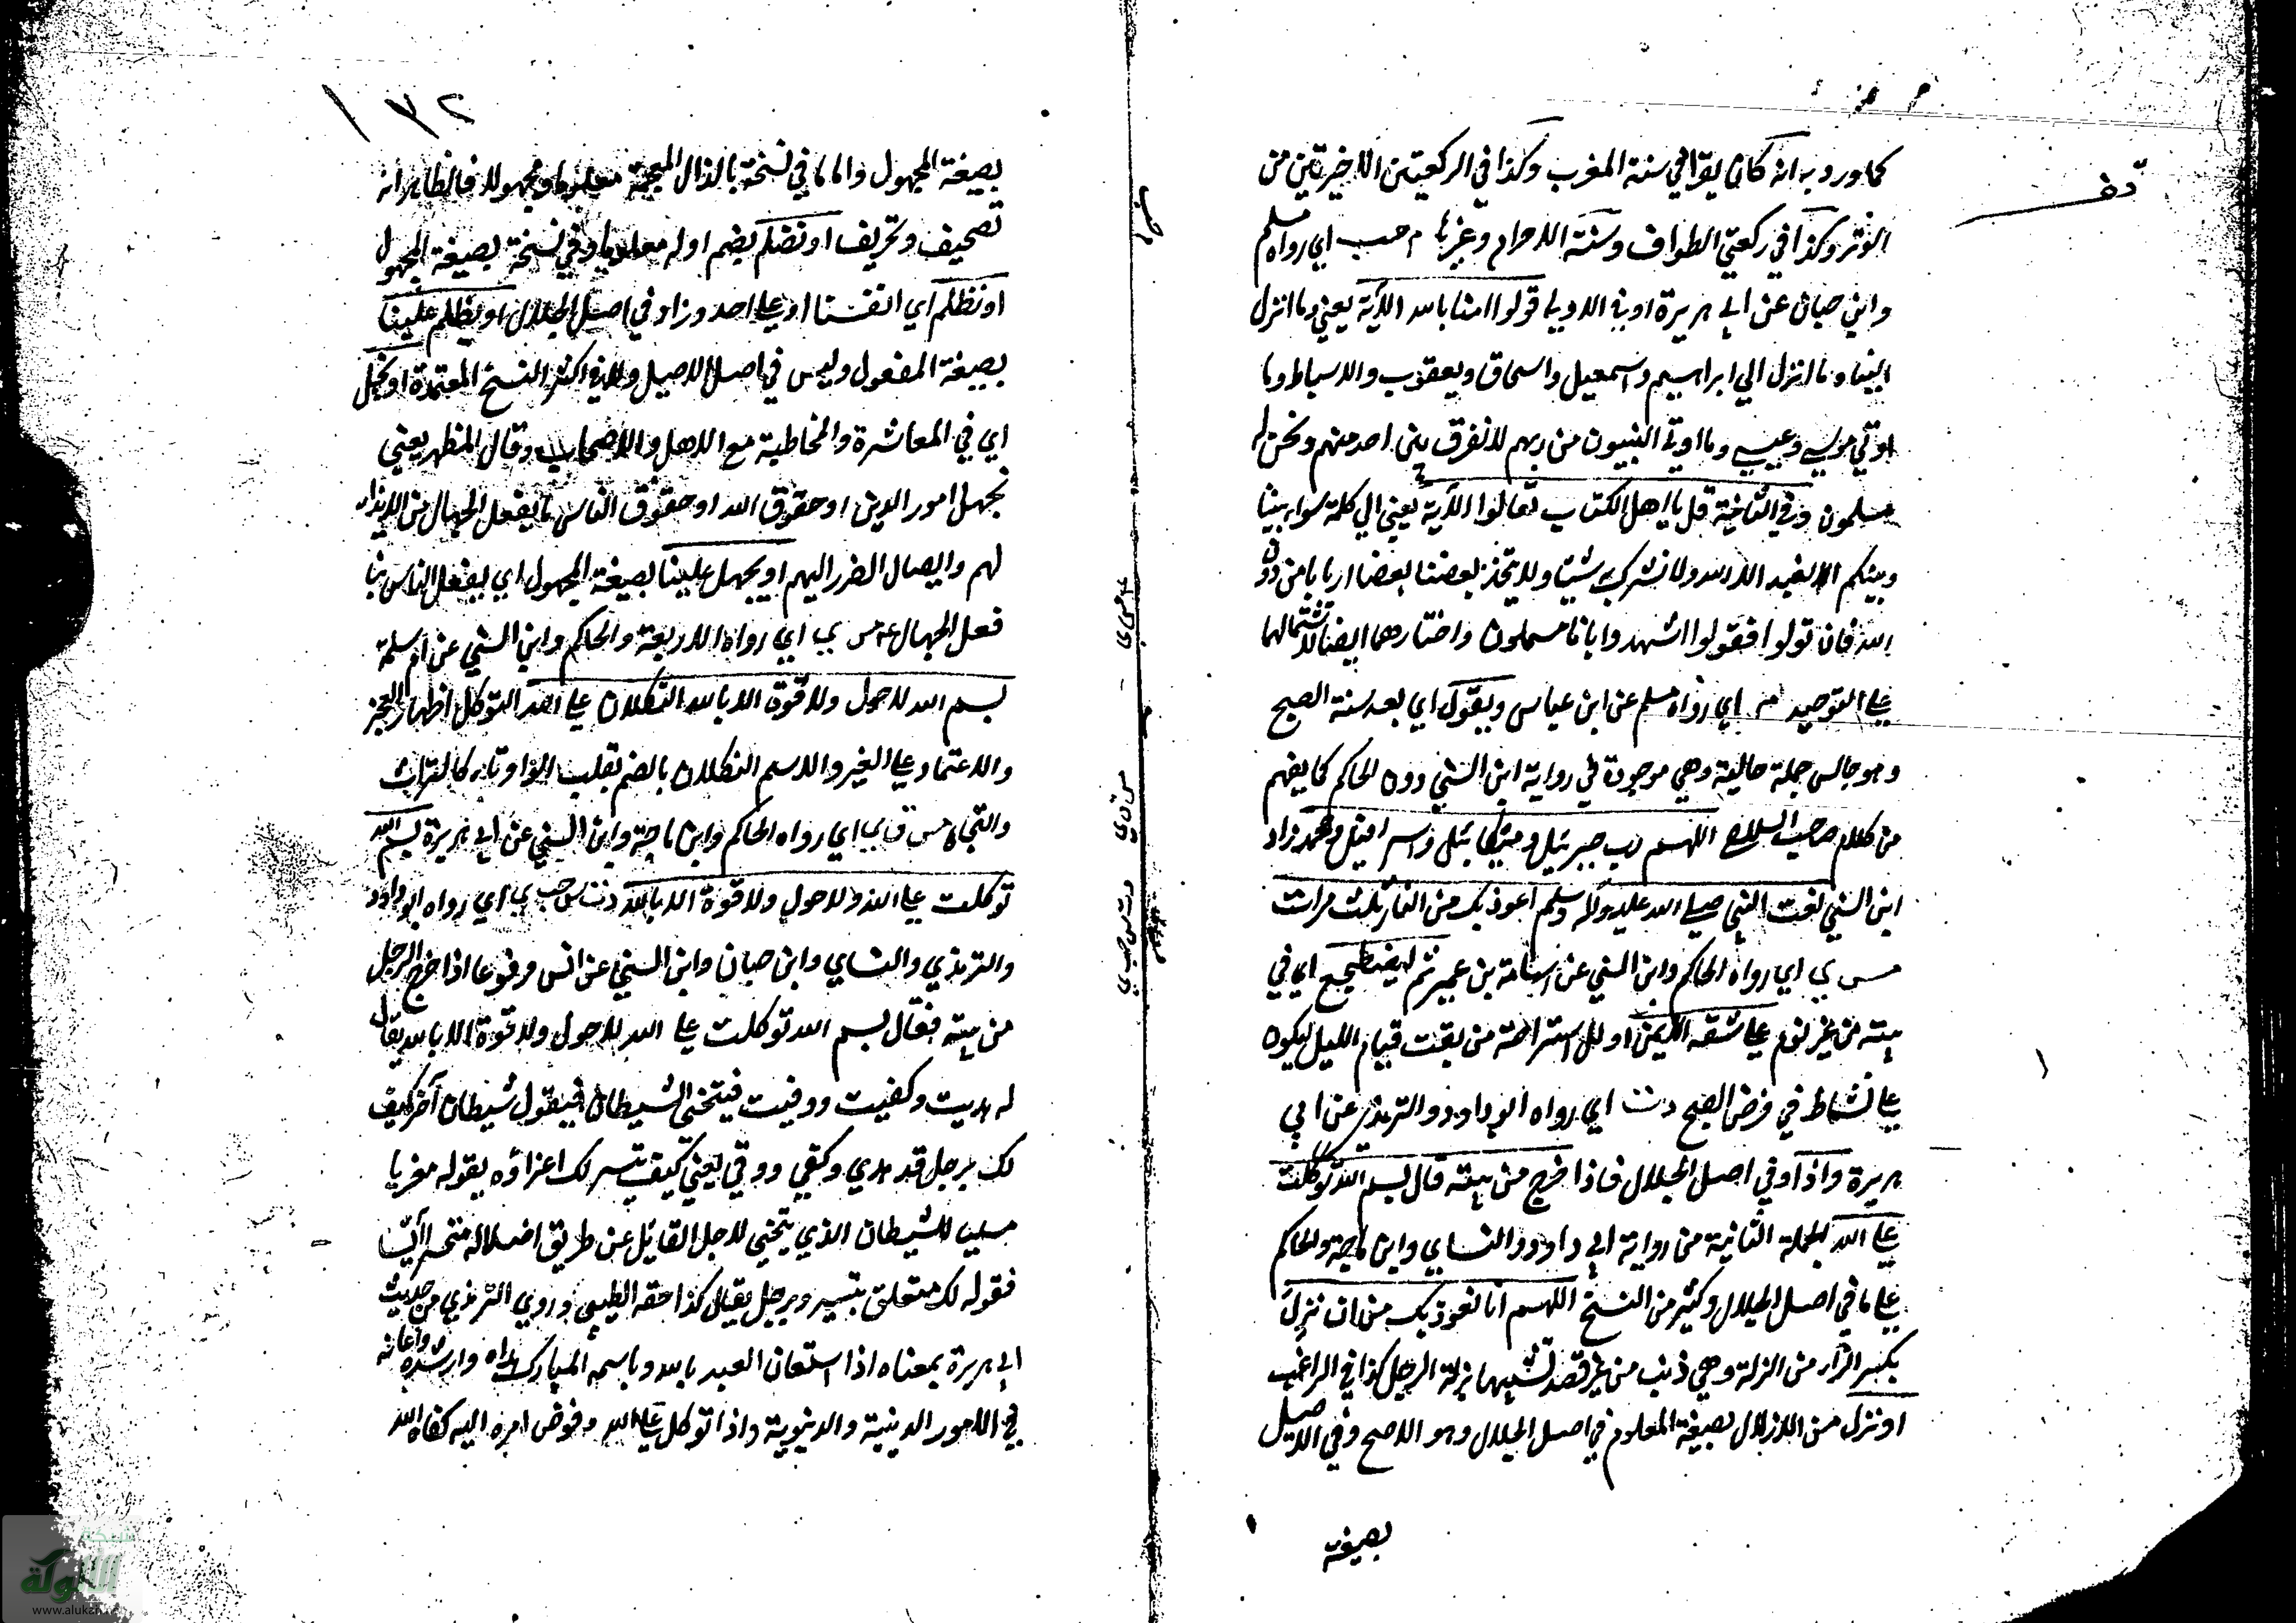 كما ورد به انه كان يقرا في سنة المغرب وكذا في الركعتين الاخيرتين من
الوتر وكذا في ركعتي الطواف وسنة الاحرام وغيرها م حب اي رواه مسلم
وابن حبان عن ابي هريرة او في الاولى قولوا امنا بالله الآية يعني وما انزل
الينا وما انزل الي ابراهيم واسمعيل واسحاق ويعقوب والاسباط وما
اوتي موسى وعيسى وما اوتي النبيون من ربهم لا نفرق بين احد منهم ونحن له
مسلمون وفي الثانية قل يا اهل الكتاب تعالوا الآية يعني الي كلمة سواء بيننا
وبينكم الا نعبد الا الله ولا نشرك به شيئا ولا يتخذ بعضنا بعضا اربابا من دون
الله فان تولوا فقولوا اشهدوا بانا مسلمون واختارهما ايضا لاشتمالهما
على التوحيد م اي رواه مسلم عن ابن عباس ويقول اي بعد سنة الصبح
وهو جالس جملة حالية وهي موجودة في رواية ابن السني دون الحاكم كما يفهم
من كلام صاحب السلاح اللهم رب جبرئيل وميكائيل واسرافيل ومحمد زاد
ابن السني لفت النبي صلى الله عليه وآله وسلم اعوذ بك من النار ثلث مرات
مس ي اي رواه الحاكم وابن السني عن اسامة بن عمير ثم ليضطجع اي في
بيته من غير نوم على شقه الايمن او للاستراحة من تعب قيام الليل ليكون
على نشاط في فرض الصبح د ت اي رواه ابو داود والترمذي عن ابي
هريرة واذا وفي اصل الجلال فاذا خرج من بيته قال بسم الله توكلت
على الله الجملة الثانية من رواية ابي داود والنساي وابن ماجة والحاكم
على ما في اصل الجلال وكثير من النسخ اللهم انا نعوذ بك من ان نزل
بكسر الزاء من الزلة وهي ذنب من غير قصد تشبيها بزلة الرجل كذا في الراغب
او نزل من الازلال بصيغة المعلوم في اصل الجلال وهو الاصح وفي الاصيل
بصيغة
١٣٢
بصيغة المجهول واما ما في نسخة بالذال المعجمة معلوما ومجهولا فالظاهر انه
تصحيف وتحريف او نضل بضم اوله معلوما وفي نسخة بصيغة المجهول
او نظلم اي انفسنا او على احد وزاد في اصل الجلال او يظلم علينا
بصيغة المفعول وليس في اصل الاصيل ولا في اكثر النسخ المعتمدة او نجهل
اي في المعاشرة والمخاطبة مع الاهل والاصحاب وقال المظهر يعني
نجهل امور الدين او حقوق الله او حقوق الناس ما يفعل الجهال من الايذاء
لهم وايصال الضرر اليهم او يجهل علينا بصيغة المجهول اي يفعل الناس بنا
فعل الجهال عه مس ي اي رواه الاربعة والحاكم وابن السني عن ام سلمة
بسم الله لا حول ولا قوة الا بالله التكلان على الله التوكل اظهار العجز
والاعتماد على الغير والاسم التكلان بالضم بقلب الواو تاء كالتراث
والتجاه مس ق ي اي رواه الحاكم وابن ماجة وابن السني عن ابي هريرة بسم الله
توكلت على الله ولا حول ولا قوة الا بالله د ت س حب ي اي رواه ابو داود
والترمذي والنساي وابن حبان وابن السني عن انس مرفوعا اذا خرج الرجل
من بيته فقال بسم الله توكلت على الله لا حول ولا قوة الا بالله يقال
له هديت وكفيت ووقيت فيتنحى الشيطان فيقول شيطان آخر كيف
لك برجل قد هدي وكفي ووقي يعني كيف تيسر لك اغواؤه بقوله مغريا
مسليا للشيطان الذي يتنحى لاجل القائل عن طريق اضلاله متحسرا آيسا
فقوله لك متعلق بتيسر وبرجل يقال كذا حققه الطيبي وروي الترمذي من حديث
ابي هريرة بمعناه اذا استعان العبد بالله وباسمه المبارك هداه وارشده واعانه
في الامور الدينية والدنيوية واذا توكل على الله وفوض امره اليه كفاه الله
شبكة
الألوكة